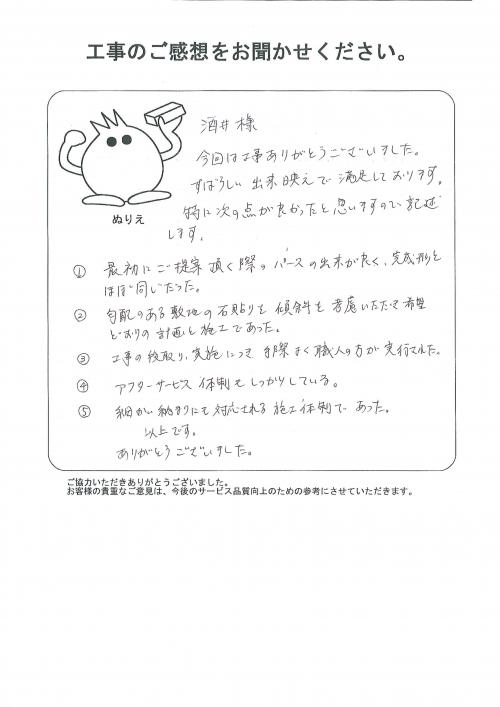 工事のご感想をお聞かせください。
酒井様
今回は工事ありがとうございました。
すばらしい出来映えで満足しております。
特に次の点が良かったと思いますので記述
します。
ぬりえ
① 最初にご提案頂く際のパースの出来が良く、完成形と
ほぼ同じだった。
② 勾配のある敷地の石貼りを傾斜を考慮いただき希望
どおりの計画と施工であった。
③ 工事の段取り、実施につき手際よく職人の方が実行された。
④ アフターサービス体制もしっかりしている。
⑤ 細かい納まりにも対応される施工体制であった。
以上です。
ありがとうございました。
ご協力いただきありがとうございました。
お客様の貴重なご意見は、今後のサービス品質向上のための参考にさせていただきます。